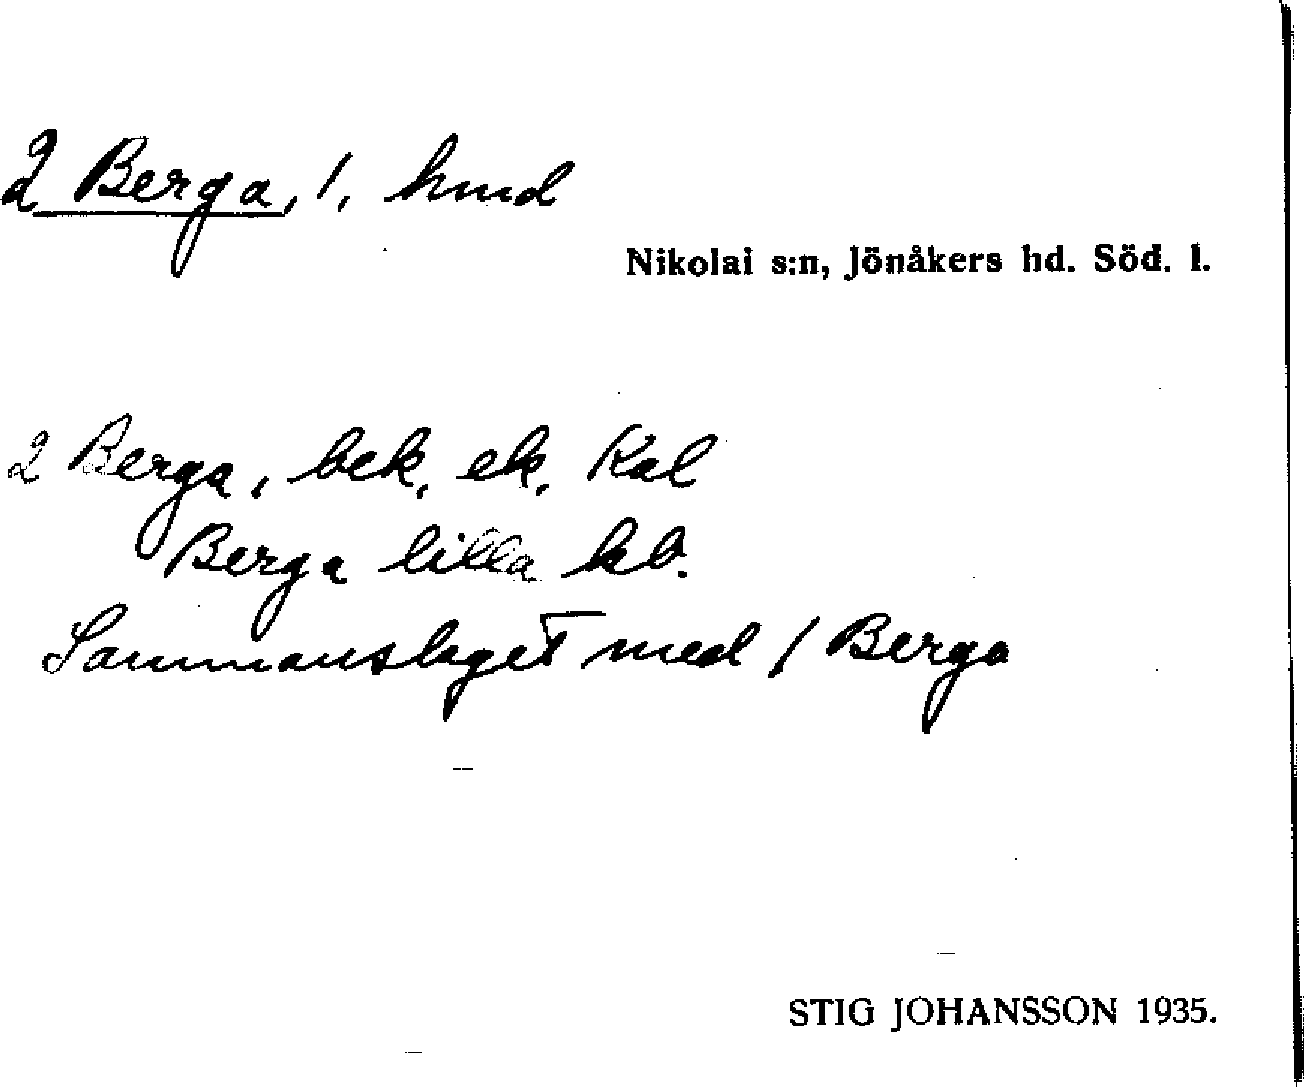 2 Berga, 1, hmd
Nikolai s:n, Jönåkers hd. Söd. l.
2 Berga, bek, ek, Kal
Berga lilla kb.
Sammanslaget med 1 Berga
STIG JOHANSSON 1935.